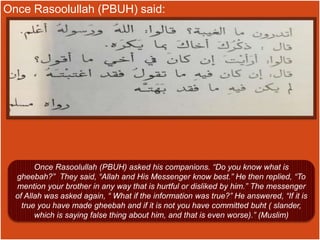 Once Rasoolullah (PBUH) said:
أتدرون ما الغيبة؟ قالوا: اللهُ ورَسولُهُ أعْلم.
قال: ذِكرُكَ أخاكَ بما يكرَه.
قالوا: أَرَأَيْتَ إن كانَ في أخي ما أقولُ؟
قال: إن كان فيه ما تقولُ فقد اغتبتَهُ، وإن
لم يكن فيه ما تقولُ فقد بَهَتَّهُ
رواه مسلم
Once Rasoolullah (PBUH) asked his companions. “Do you know what is
gheebah?” They said, “Allah and His Messenger know best.” He then replied, “To
mention your brother in any way that is hurtful or disliked by him.” The messenger
of Allah was asked again, “ What if the information was true?” He answered, “If it is
true you have made gheebah and if it is not you have committed buht ( slander,
which is saying false thing about him, and that is even worse).” (Muslim)